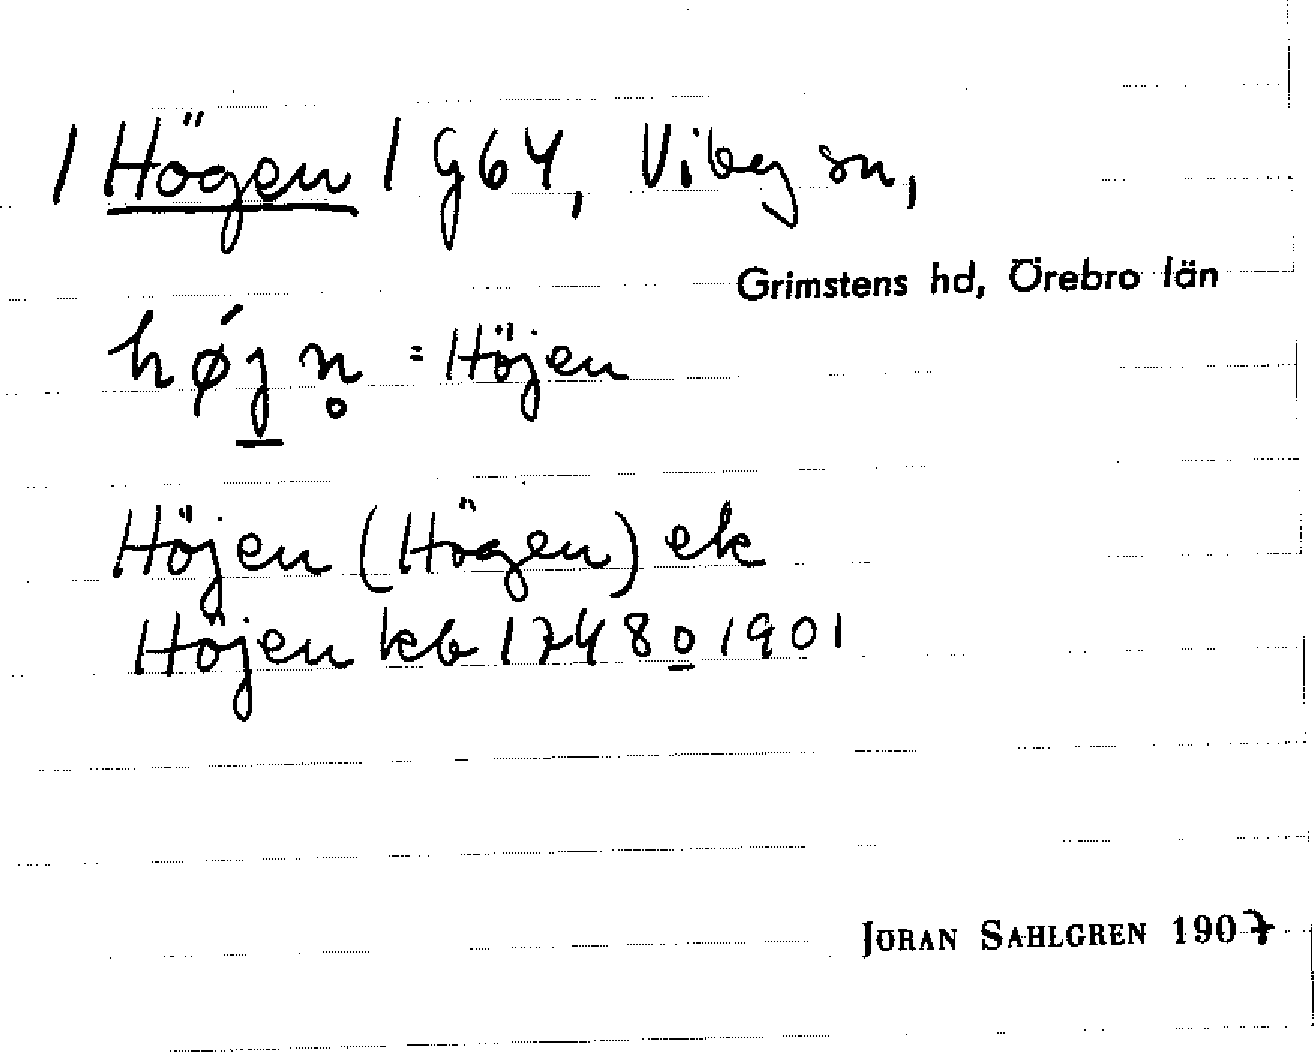 / Högen / G64, Viby sn,
Grimstens hd, Örebro län
hǿj̲n̥ = Höjen
Höjen (Högen) ek
Höjen kb 1748 o̲ 1901
JÖRAN SAHLGREN 1907